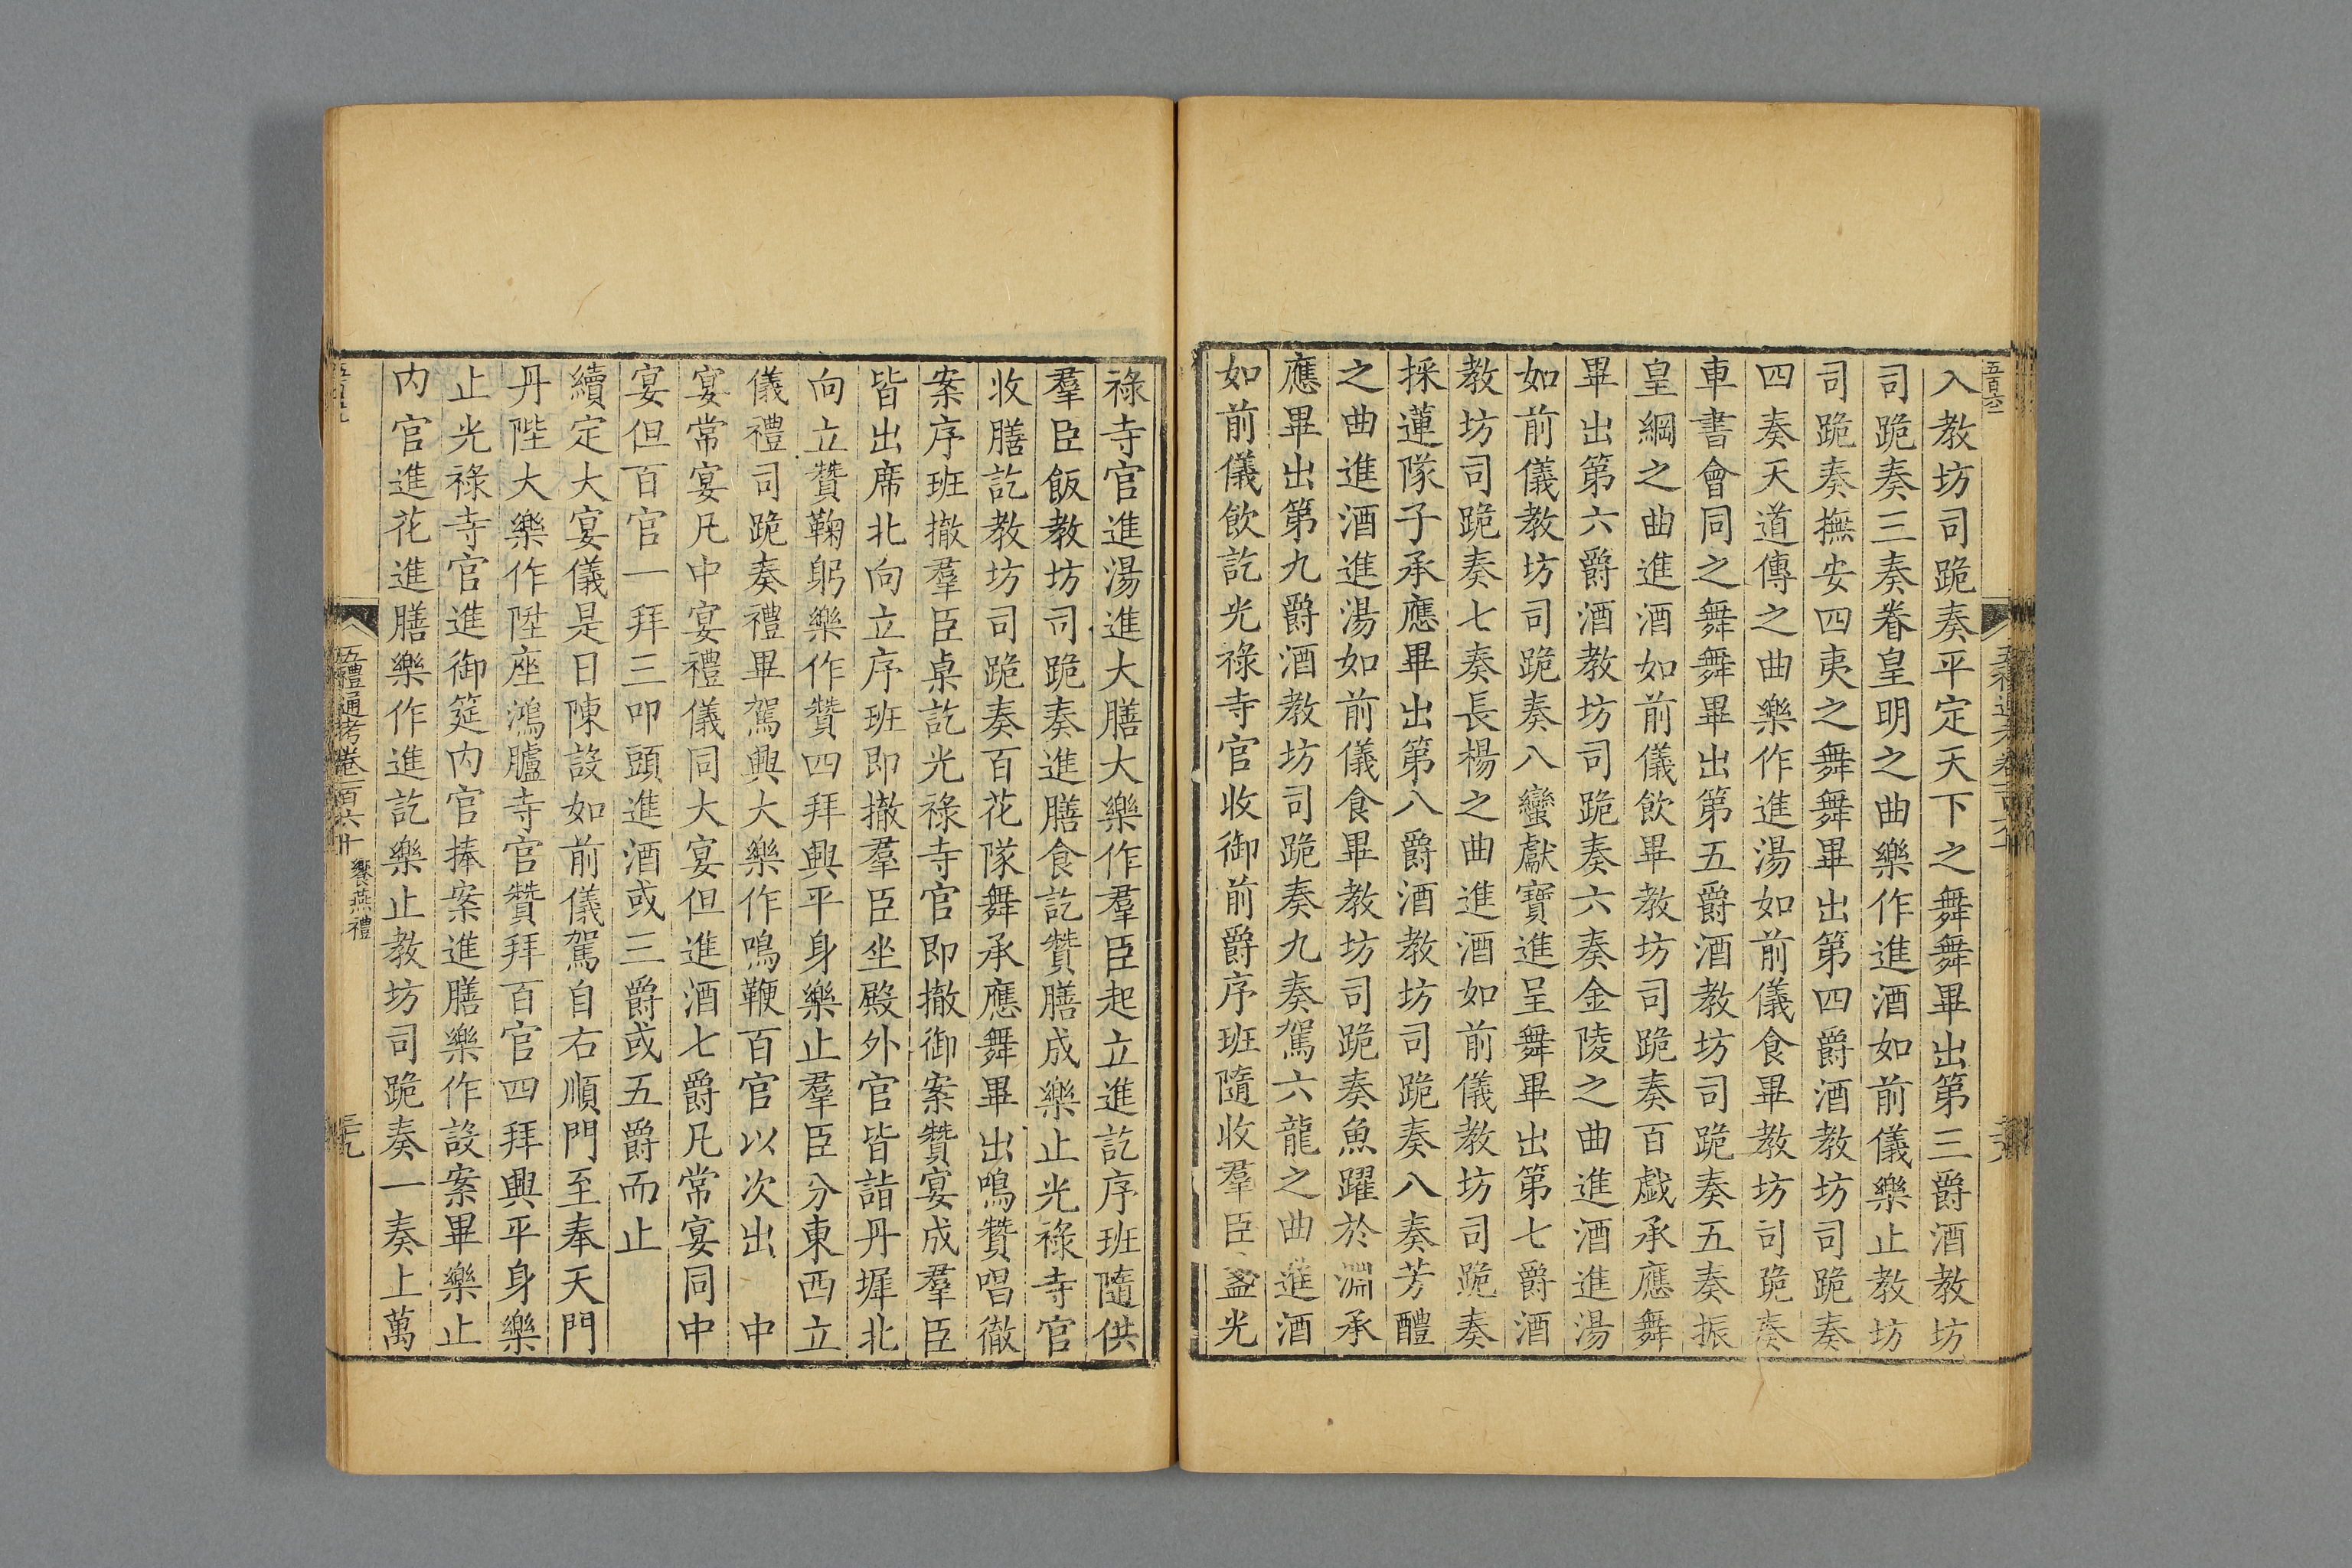 入教坊司跪奏平定天下之舞舞畢出第三爵酒教坊
司跪奏三奏眷皇明之曲樂作進酒如前儀樂止教坊
司跪奏撫安四夷之舞舞畢出第四爵酒教坊司跪奏
四奏天道傳之曲樂作進湯如前儀食畢教坊司跪奏
車書會同之舞舞畢出第五爵酒教坊司跪奏五奏振
皇綱之曲進酒如前儀飲畢教坊司跪奏百戲承應舞
畢出第六爵酒教坊司跪奏六奏金陵之曲進酒進湯
如前儀教坊司跪奏八蠻獻寶進呈舞畢出第七爵酒
教坊司跪奏七奏長楊之曲進酒如前儀教坊司跪奏
採蓮隊子承應畢出第八爵酒教坊司跪奏八奏芳醴
之曲進酒進湯如前儀食畢教坊司跪奏魚躍於淵承
應畢出第九爵酒教坊司跪奏九奏駕六龍之曲進酒
如前儀飲訖光祿寺官收御前爵序班隨收羣臣盞光
祿寺官進湯進大膳大樂作羣臣起立進訖序班隨供
羣臣飯教坊司跪奏進膳食訖贊膳成樂止光祿寺官
收膳訖教坊司跪奏百花隊舞承應舞畢出鳴贊唱徹
案序班撤羣臣桌訖光祿寺官即撤御案贊宴成羣臣
皆出席北向立序班即撤羣臣坐殿外官皆詣丹墀北
向立贊鞠躬樂作贊四拜興平身樂止羣臣分東西立
儀禮司跪奏禮畢駕興大樂作鳴鞭百官以次出　中
宴常宴凡中宴禮儀同大宴但進酒七爵凡常宴同中
宴但百官一拜三叩頭進酒或三爵或五爵而止
續定大宴儀是日陳設如前儀駕自右順門至奉天門
丹陛大樂作陞座鴻臚寺官贊拜百官四拜興平身樂
止光祿寺官進御筵内官捧案進膳樂作設案畢樂止
内官進花進膳樂作進訖樂止教坊司跪奏一奏上萬
五禮通考卷一百六十 饗燕禮